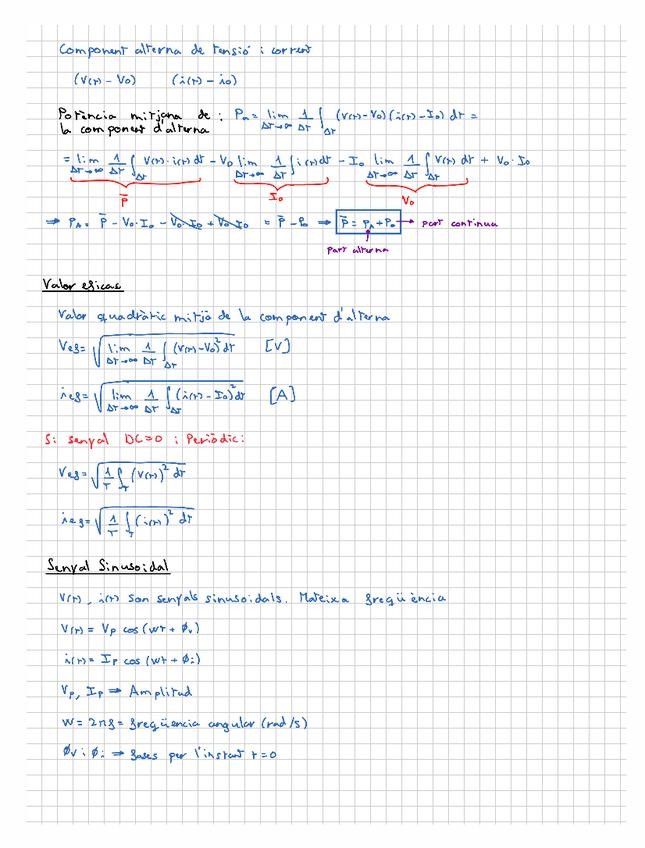 Component alterna de tensió i corrent
(V(t) - V₀) (i(t) - i₀)
Potència mitjana de : P_A = lim_{Δt→∞} 1/Δt ∫_{Δt} (V(t)-V₀)(i(t)-I₀) dt =
la component d'alterna
= lim_{Δt→∞} 1/Δt ∫_{Δt} V(t)·i(t) dt - V₀ lim_{Δt→∞} 1/Δt ∫ i(t) dt - I₀ lim_{Δt→∞} 1/Δt ∫_{Δt} V(t) dt + V₀·I₀
P̄ I₀ V₀
⇒ P_A = P̄ - V₀·I₀ - V₀·I₀ + V₀·I₀ = P̄ - P₀ ⇒ P̄ = P_A + P₀ → part continua
part alterna
Valor eficaç
Valor quadràtic mitjà de la component d'alterna
Vef = √(lim_{Δt→∞} 1/Δt ∫_{Δt} (V(t)-V₀)² dt) [V]
ief = √(lim_{Δt→∞} 1/Δt ∫_{Δt} (i(t)-I₀)² dt) [A]
Si senyal DC=0 i Periòdic:
Vef = √(1/T ∫_T (V(t))² dt)
ief = √(1/T ∫_T (i(t))² dt)
Senyal Sinusoidal
V(t), i(t) son senyals sinusoidals. Mateixa freqüència
V(t) = Vp cos(wt + ϕv)
i(t) = Ip cos(wt + ϕi)
Vp, Ip ⇒ Amplitud
w = 2πf = freqüencia angular (rad/s)
ϕv i ϕi ⇒ fases per l'instant t=0